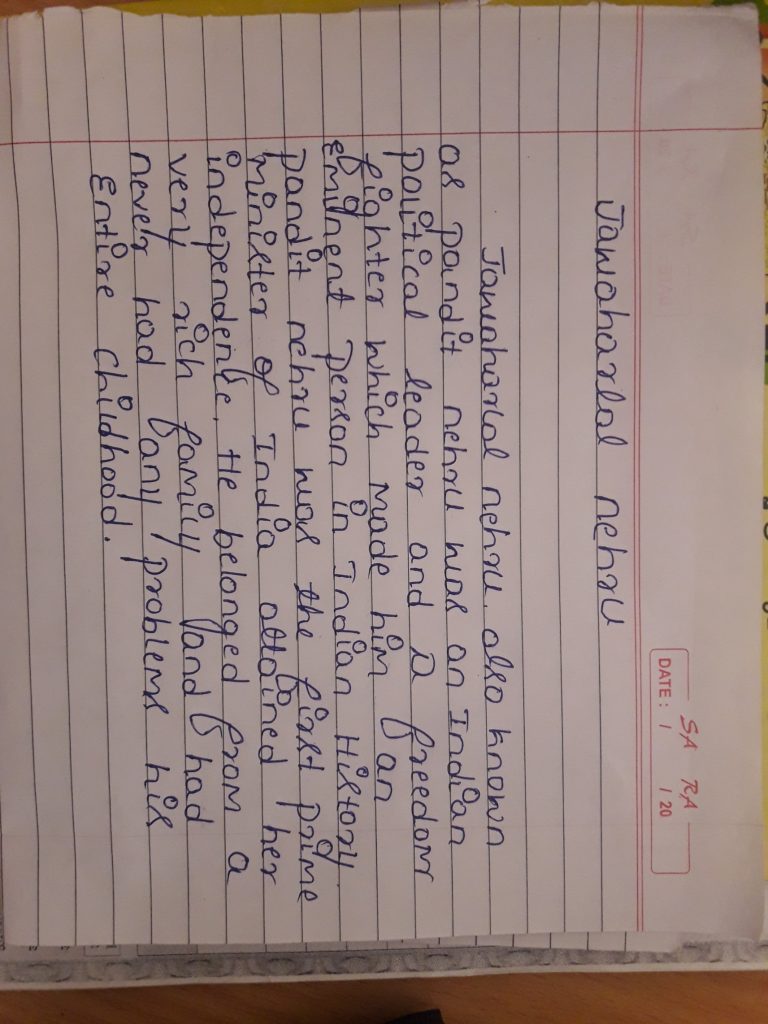 SA RA
DATE: / / 20
Jawaharlal nehru
Jawaharlal nehru. also known
as pandit nehru was an Indian
political leader and a freedom
fighter which made him an
eminent person in Indian History.
pandit nehru was the first prime
Minister of India attained her
independence. He belonged from a
very rich family and had
never had any problems his
Entire childhood.